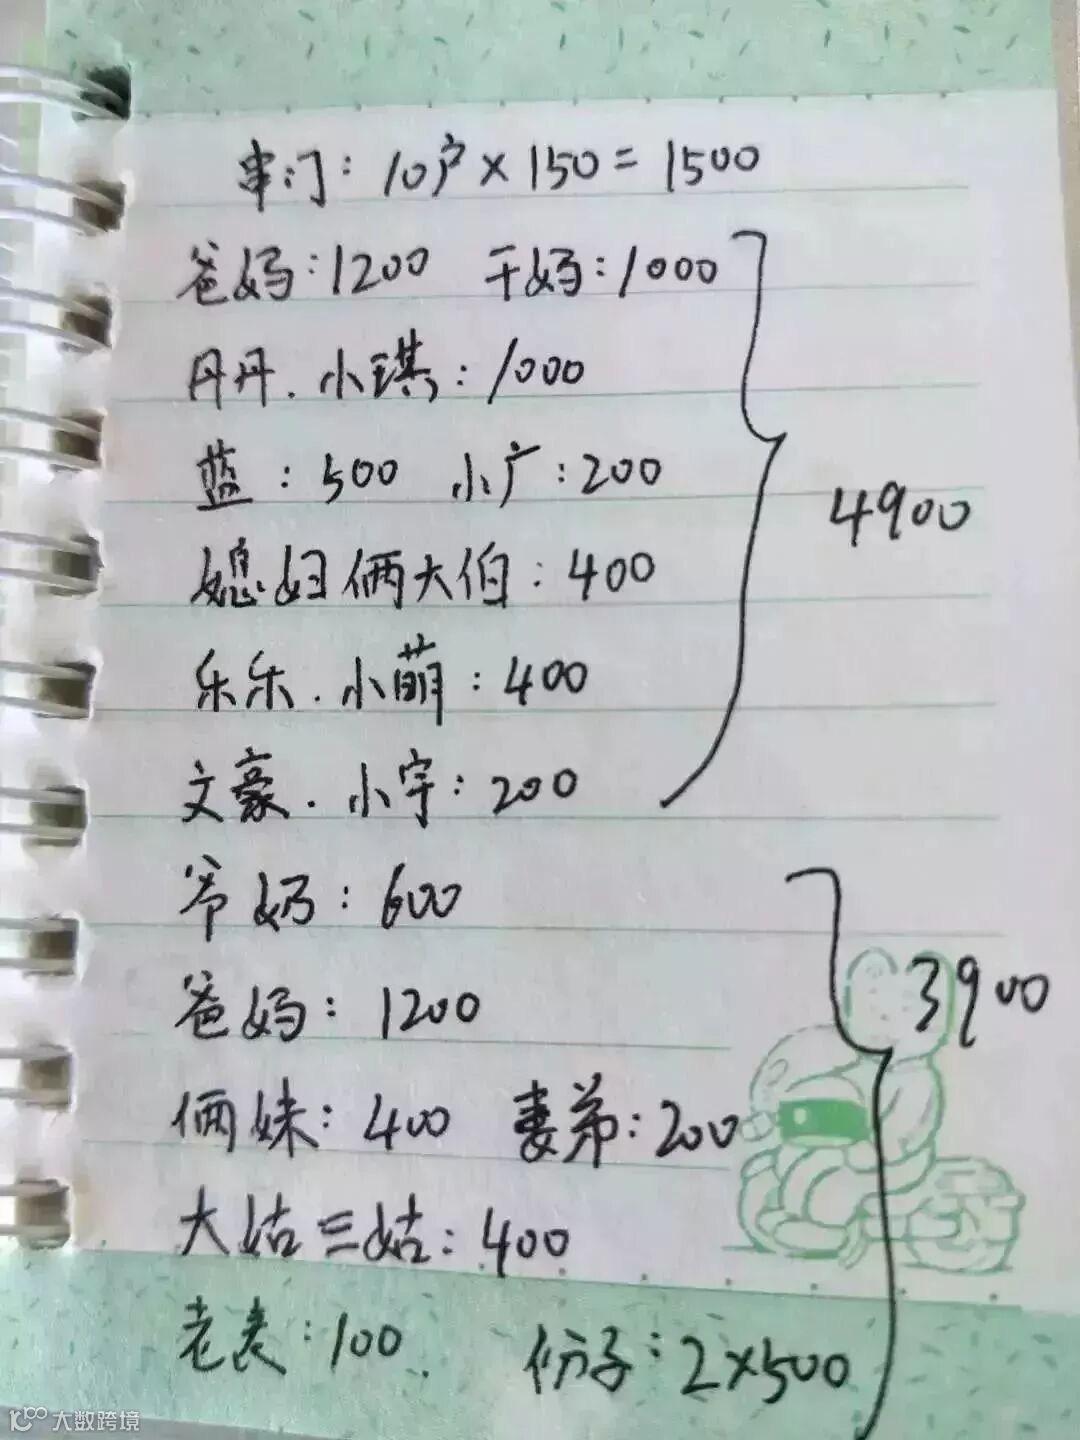 串门：10户×150=1500
爸妈：1200 干妈：1000
丹丹．小琪：1000
蓝：500 小广：200
4900
媳妇俩大伯：400
乐乐．小萌：400
文豪．小宇：200
爷奶：600
3900
爸妈：1200
俩妹：400 妻弟：200
大姑三姑：400
老表：100． 份子：2×500
大数跨境